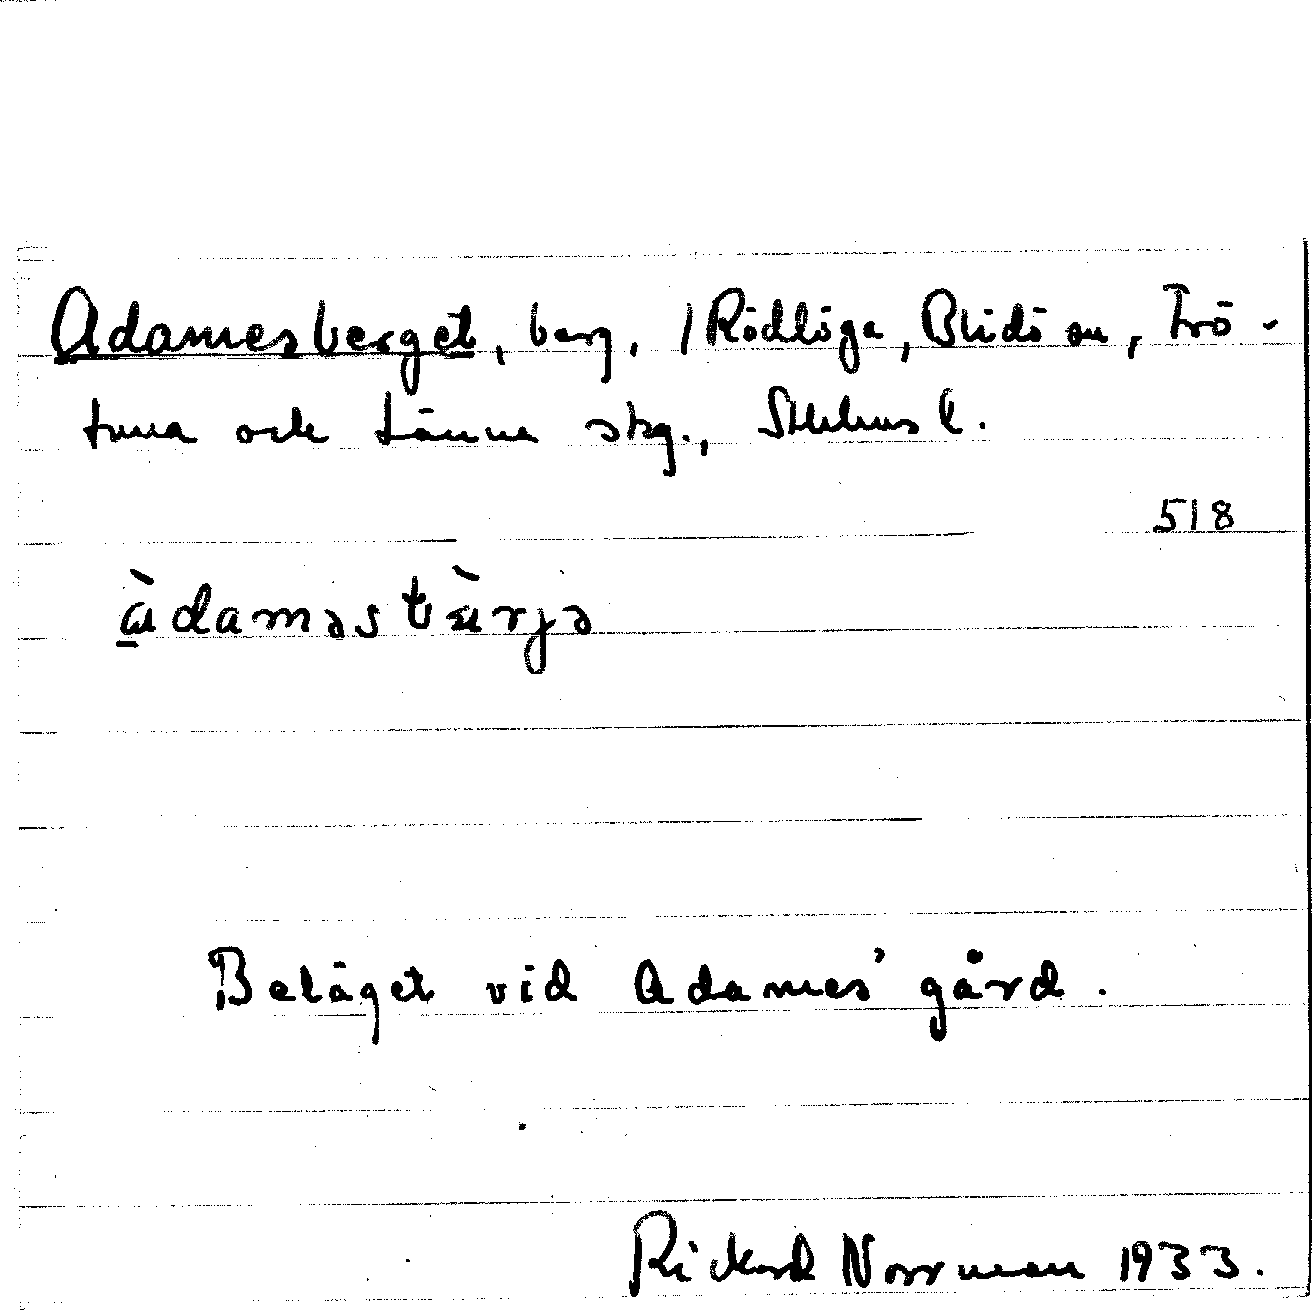 Adamesberget, berg, /Rödlöga, Blidö sn, Frö-
tuna och Länna skg., Sthlms l.
518
àdaməsbæ̀rjə
Beläget vid Adames' gård.
Rickard Norrman 1933.